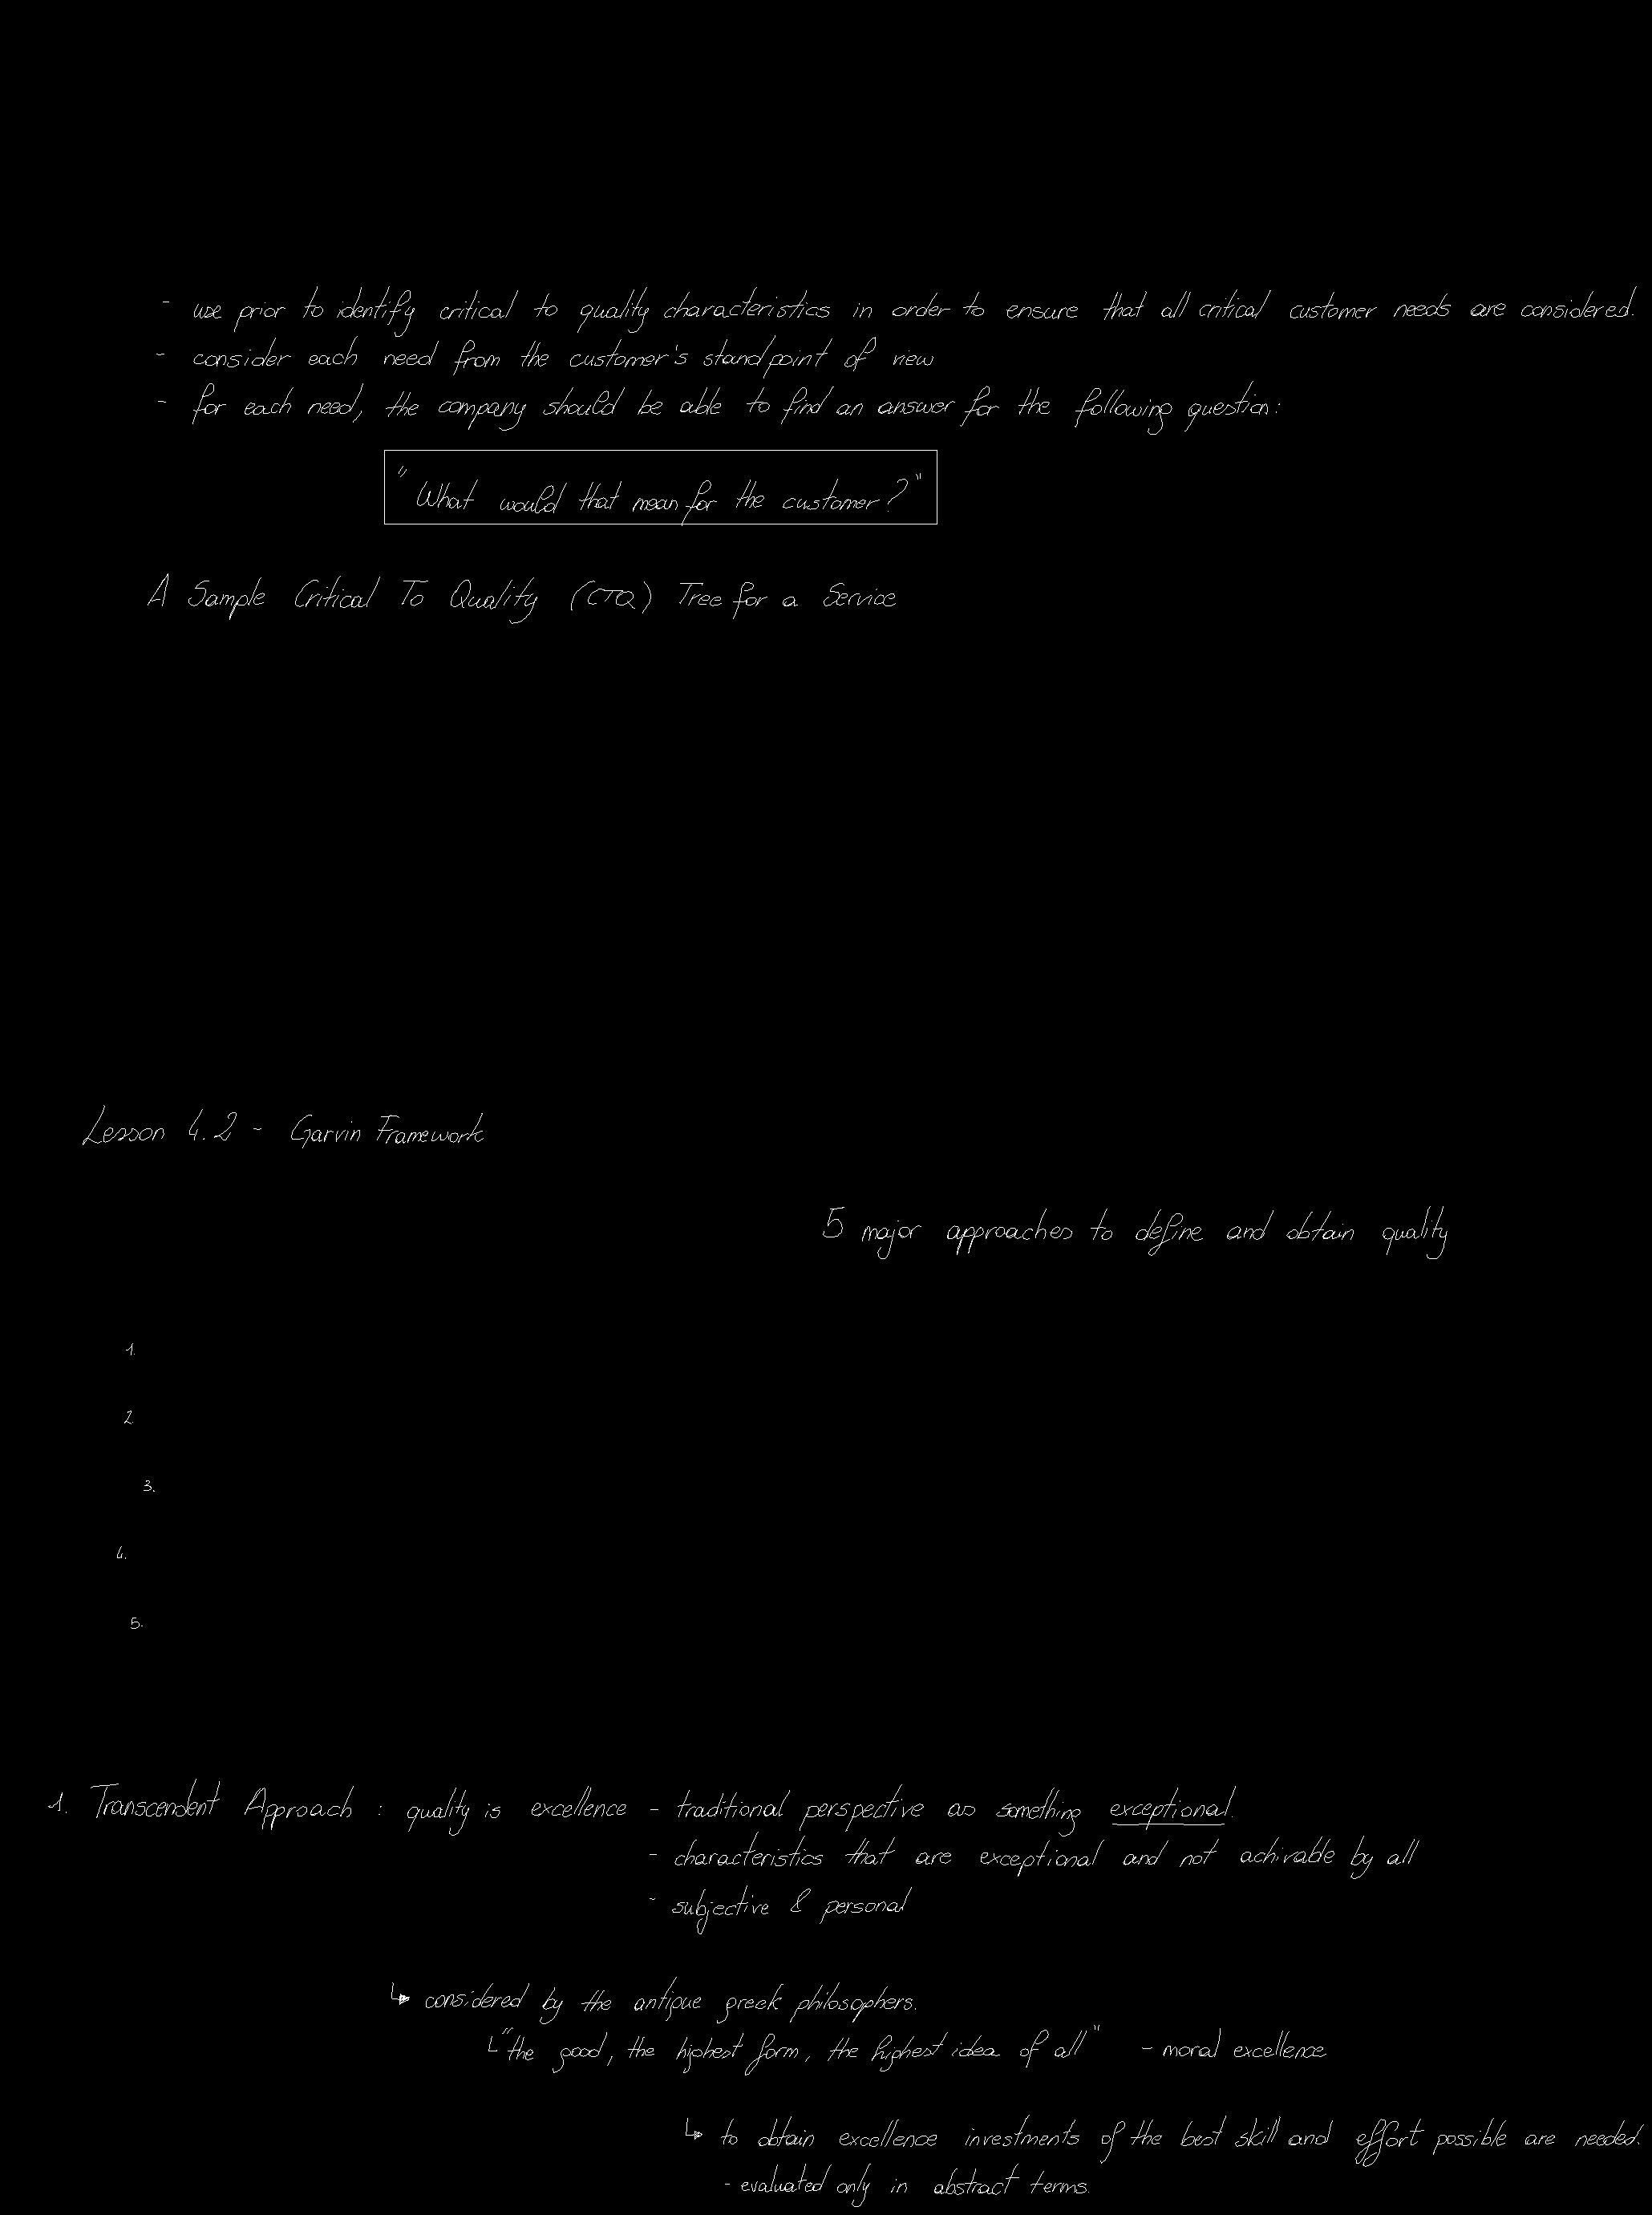 - use prior to identify critical to quality characteristics in order to ensure that all critical customer needs are considered.
- consider each need from the customer's standpoint of view
- for each need, the company should be able to find an answer for the following question:
"What would that mean for the customer?"
A Sample Critical To Quality (CTQ) Tree for a Service
Lesson 4.2 - Garvin Framework
5 major approaches to define and obtain quality
1.
2
3.
4.
5.
1. Transcendent Approach : quality is excellence - traditional perspective as something exceptional.
- characteristics that are exceptional and not achivable by all
- subjective & personal
↳ considered by the antique greek philosophers.
↳ "the good, the highest form, the highest idea of all" - moral excellence
↳ to obtain excellence investments of the best skill and effort possible are needed.
- evaluated only in abstract terms.